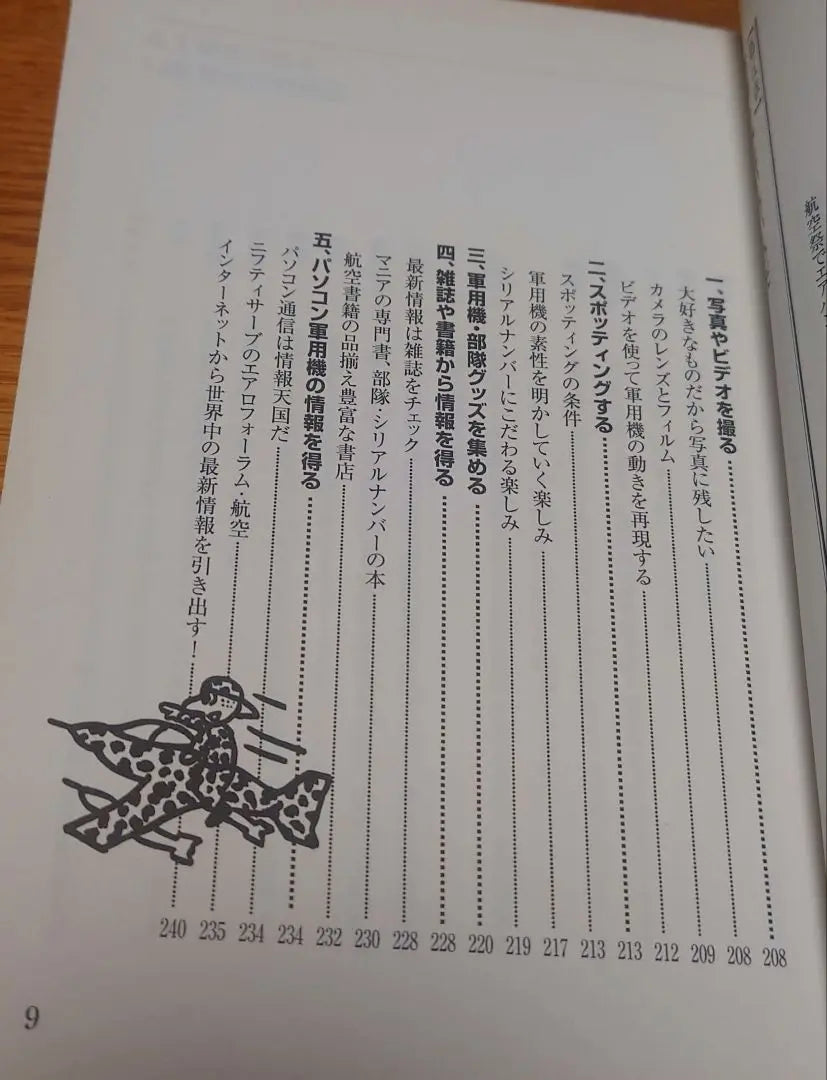 一、写真やビデオを撮る 208
大好きなものだから写真に残したい 208
カメラのレンズとフィルム 209
ビデオを使って軍用機の動きを再現する 212
二、スポッティングする 213
スポッティングの条件 213
軍用機の素性を明かしていく楽しみ 217
シリアルナンバーにこだわる楽しみ 219
三、軍用機・部隊グッズを集める 220
四、雑誌や書籍から情報を得る 228
最新情報は雑誌をチェック 228
マニアの専門書、部隊・シリアルナンバーの本 230
航空書籍の品揃え豊富な書店 232
五、パソコン軍用機の情報を得る 234
パソコン通信は情報天国だ 234
ニフティサーブのエアロフォーラム・航空 235
インターネットから世界中の最新情報を引き出す! 240
9